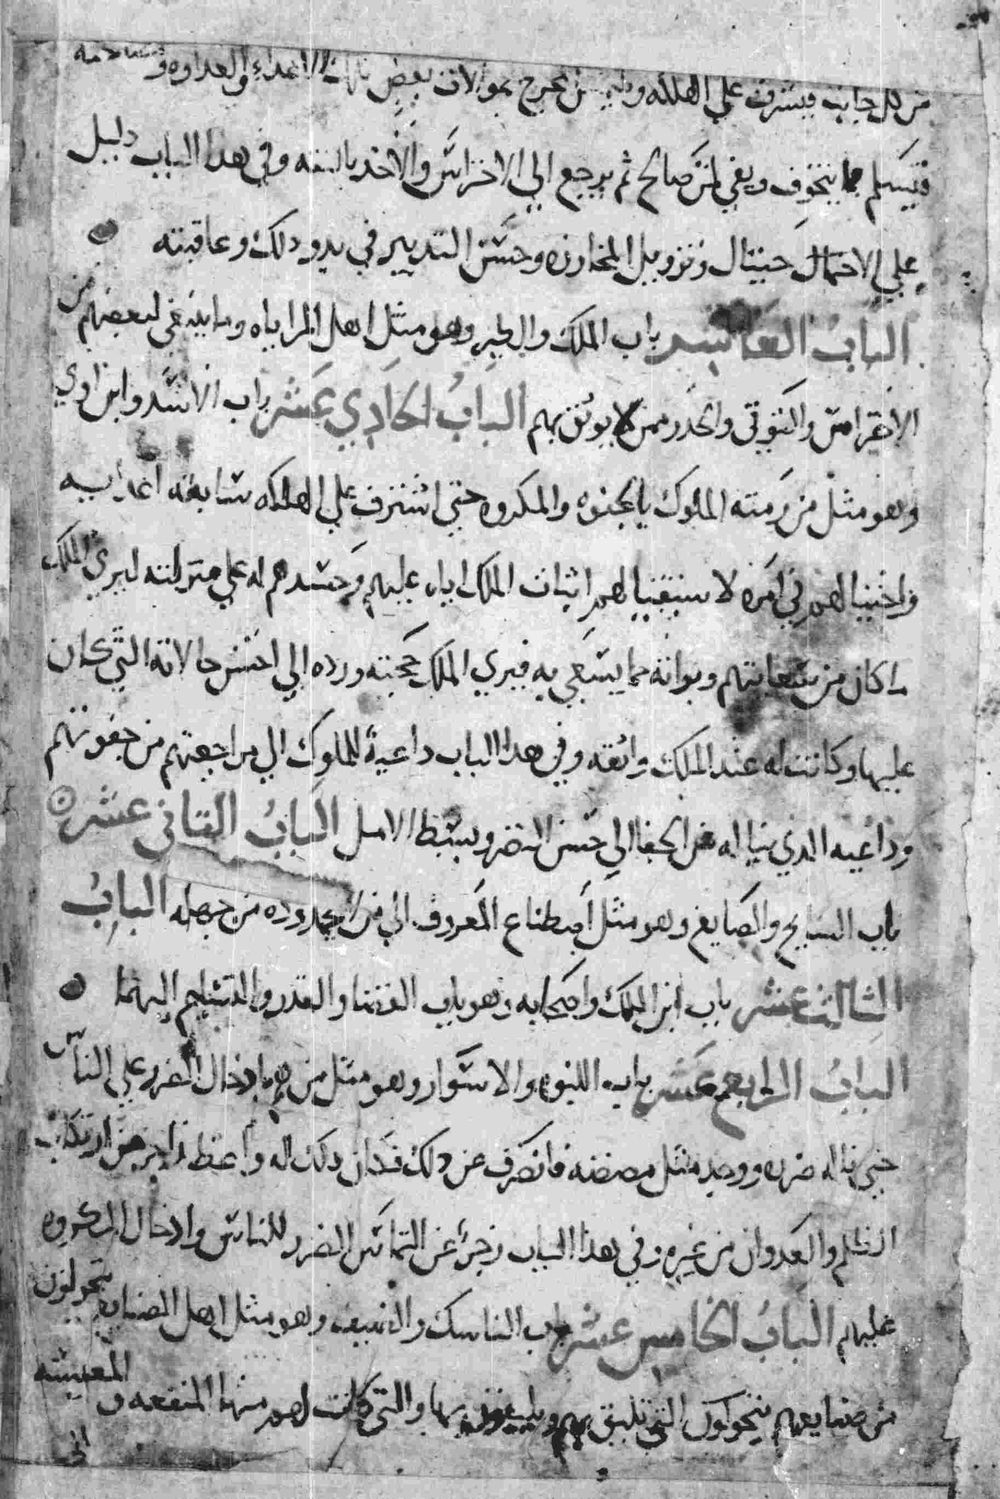 من كل جانب فيشرف علي الهلكه وليس من مخرج بموالاة بعض تلك الاعداء والعداوه و
فيسلم مما يتخوف ويفي لمن صالح ثم يرجع الي الاحتراس والاخذ بالثقه وفي هدا الباب دليل
علي الاحتمال حينيال وتزويل المخاوف وحسن التدبير في بدو دلك وعاقبته
الباب العاشر باب الملك والطير وهو مثل اهل وما ينبغي لبعضهم من
الاحتراس والتوقي والحذر ممن لا يوثق بهم الباب الحادي عشر باب الاسد وابن اوي
وهو مثل من رمته الملوك بالجفوه والمكروه حتي اشرف علي الهلكه سعايه اعدايه
واحتيالهم في امره اثبات الملك اياه عليهم وحسدهم له علي منزلته ليري الملك
ما كان من سعايتهم وبراته مما يسعي به فيري الملك محبته ورده الي احسن حالاته التي كان
عليها وكانت له عند الملك وائقه وفي هدا الباب داعية للملوك الي مراجعتهم من جفوتهم
وداعيه الذي يناله من الجفا الي حسن الصبر وبسط الامل الباب الثاني عشر
باب السايح والصايغ وهو مثل اصطناع المعروف الي من من جهله الباب
الثالث عشر باب ابن الملك واصحابه وهو باب القضا والقدر والتسليم اليهما
الباب الرابع عشر باب اللبوه والاسوار وهو مثل من بادخال الضرر علي الناس
حتي ناله ضره ووجد مثل مصضه فانصرف عن دلك فكان دلك له واعظ زاجر من ارتكاب
الظلم والعدوان من غيره وفي هدا الباب زجر عن التماس الضرر للناس وادخال المكروه
عليهم الباب الخامس عشر باب الناسك والضيف وهو مثل اهل الصنايع يتحولون
من صنايعهم يتحولون التي تليق بهم والتي كانت لهم منها المنفعه و المعيشه
الي